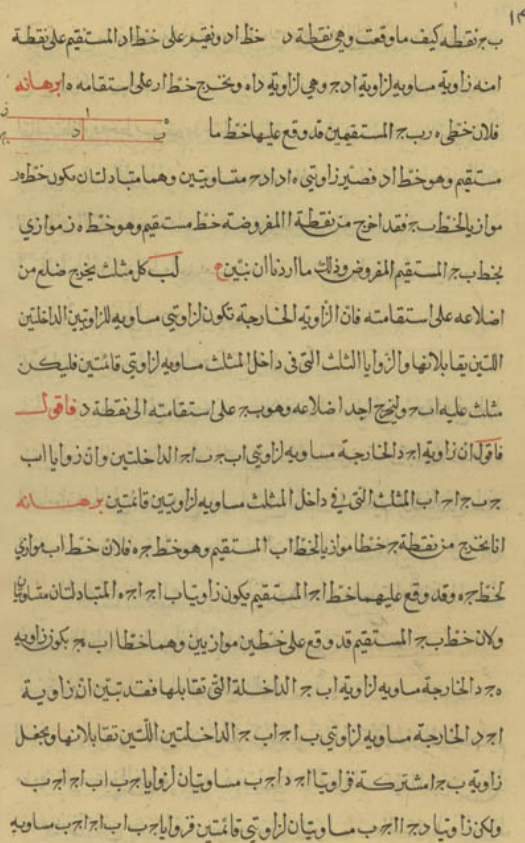 ١٤
ب ج نقطه كيف ما وقعت وهي نقطة د خط اد ونقيم على خط اد المستقيم على نقطة
ا منه زاوية مساويه لزاوية ا د ج وهي لزاوية د ا ه ونخرج خط ا ر على استقامه ه ا برهانه
فلان خطى ه ر ب ج المستقيمين قد وقع عليها خط ما
مستقيم وهو خط اد فصير زاويتى ه ا د ا د ج متساويتين وهما متبادلتان يكون خط ه ر
موازيا لخط ب ج فقد اخرج من نقطة ا المفروضة خط مستقيم وهو خط ه ز موازي
لخط ب ج المستقيم المفروض وذلك ما اردنا ان نبين لب كل مثلث يخرج ضلع من
اضلاعه على استقامته فان الزاويه الخارجة تكون لزاويتي مساويه للزاويتين الداخلتين
اللتين يقابلانها والزوايا الثلث التى فى داخل المثلث مساويه لزاويتى قائمتين فليكن
مثلث عليه ا ب ج وليخرج احد اضلاعه وهو ب ج على استقامته الى نقطة د فاقول
فاقول ان زاوية ا ج د الخارجة مساويه لزاويتي ا ب ج ب ا ج الداخلتين وان زوايا ا ب
ج ب ج ا ج ا ب المثلث التى فى داخل المثلث مساويه لزاويتين قائمتين برهانه
انا نخرج من نقطة ج خطا موازيا لخط ا ب المستقيم وهو خط ج ه فلان خط ا ب موازي
لخط ج ه وقد وقع عليهما خط ا ج المستقيم يكون زاويتا ب ا ج ا ج ه المتبادلتان متساويتان
ولان خط ب ج المستقيم قد وقع على خطين موازيين وهما خطا ا ب ه ج يكون زاويه
ه ج د الخارجة مساويه لزاويه ا ب ج الداخلة التى تقابلها فقد تبين ان زاوية
ا ج د الخارجة مساويه لزاويتي ب ا ج ا ب ج الداخلتين اللتين تقابلانها ويجعل
زاويه ب ج ا مشتركه فزاويتا ا ج د ا ج ب مساويتان لزوايا ج ب ا ب ا ج ا ج ب
ولكن زاويتا د ج ا ا ج ب مساويتان لزاويتي قائمتين فزوايا ج ب ا ب ا ج ا ج ب مساويه